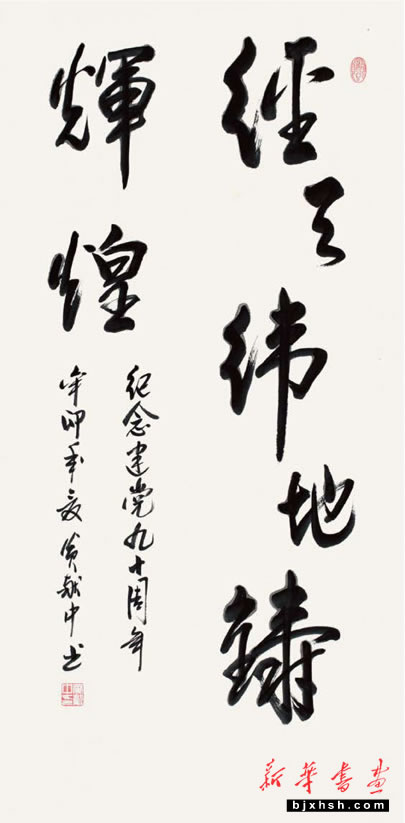 經天纬地鑄
輝煌
纪念建党九十周年
辛卯年夏黄献中书
新華書画
bjxhsh.com